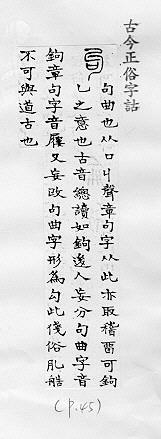 古今正俗字詁
句
句曲也从口丩聲章句字从此亦取稽畱可鉤
乙之意也古音總讀如鉤後人妄分句曲字音
鉤章句字音屨又妄改句曲字形為勾此俗肊
不可與道古也
(p.45)